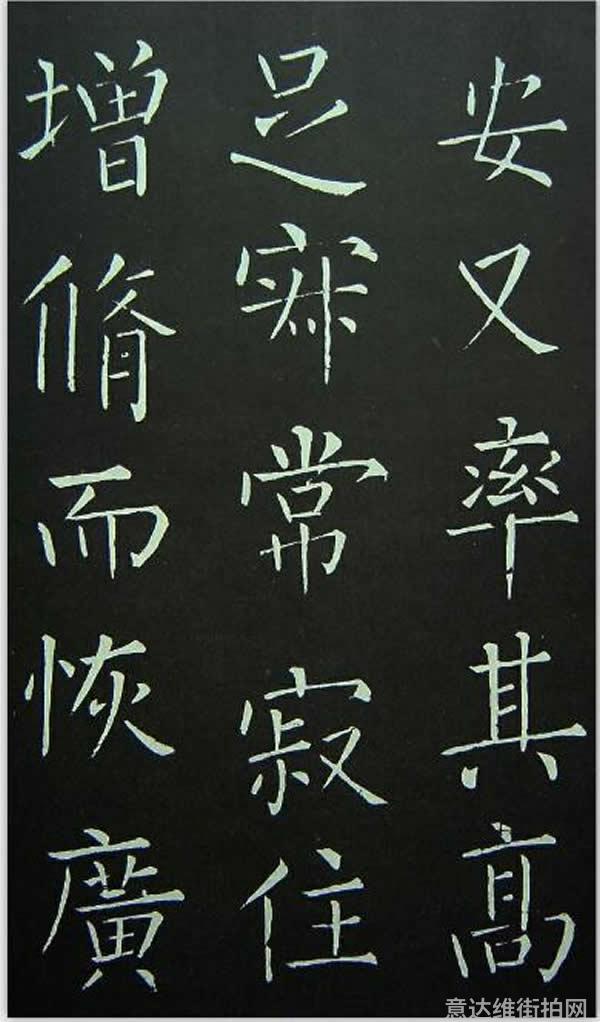 安又率其高
足常寂住
增脩而恢廣
意达维街拍网